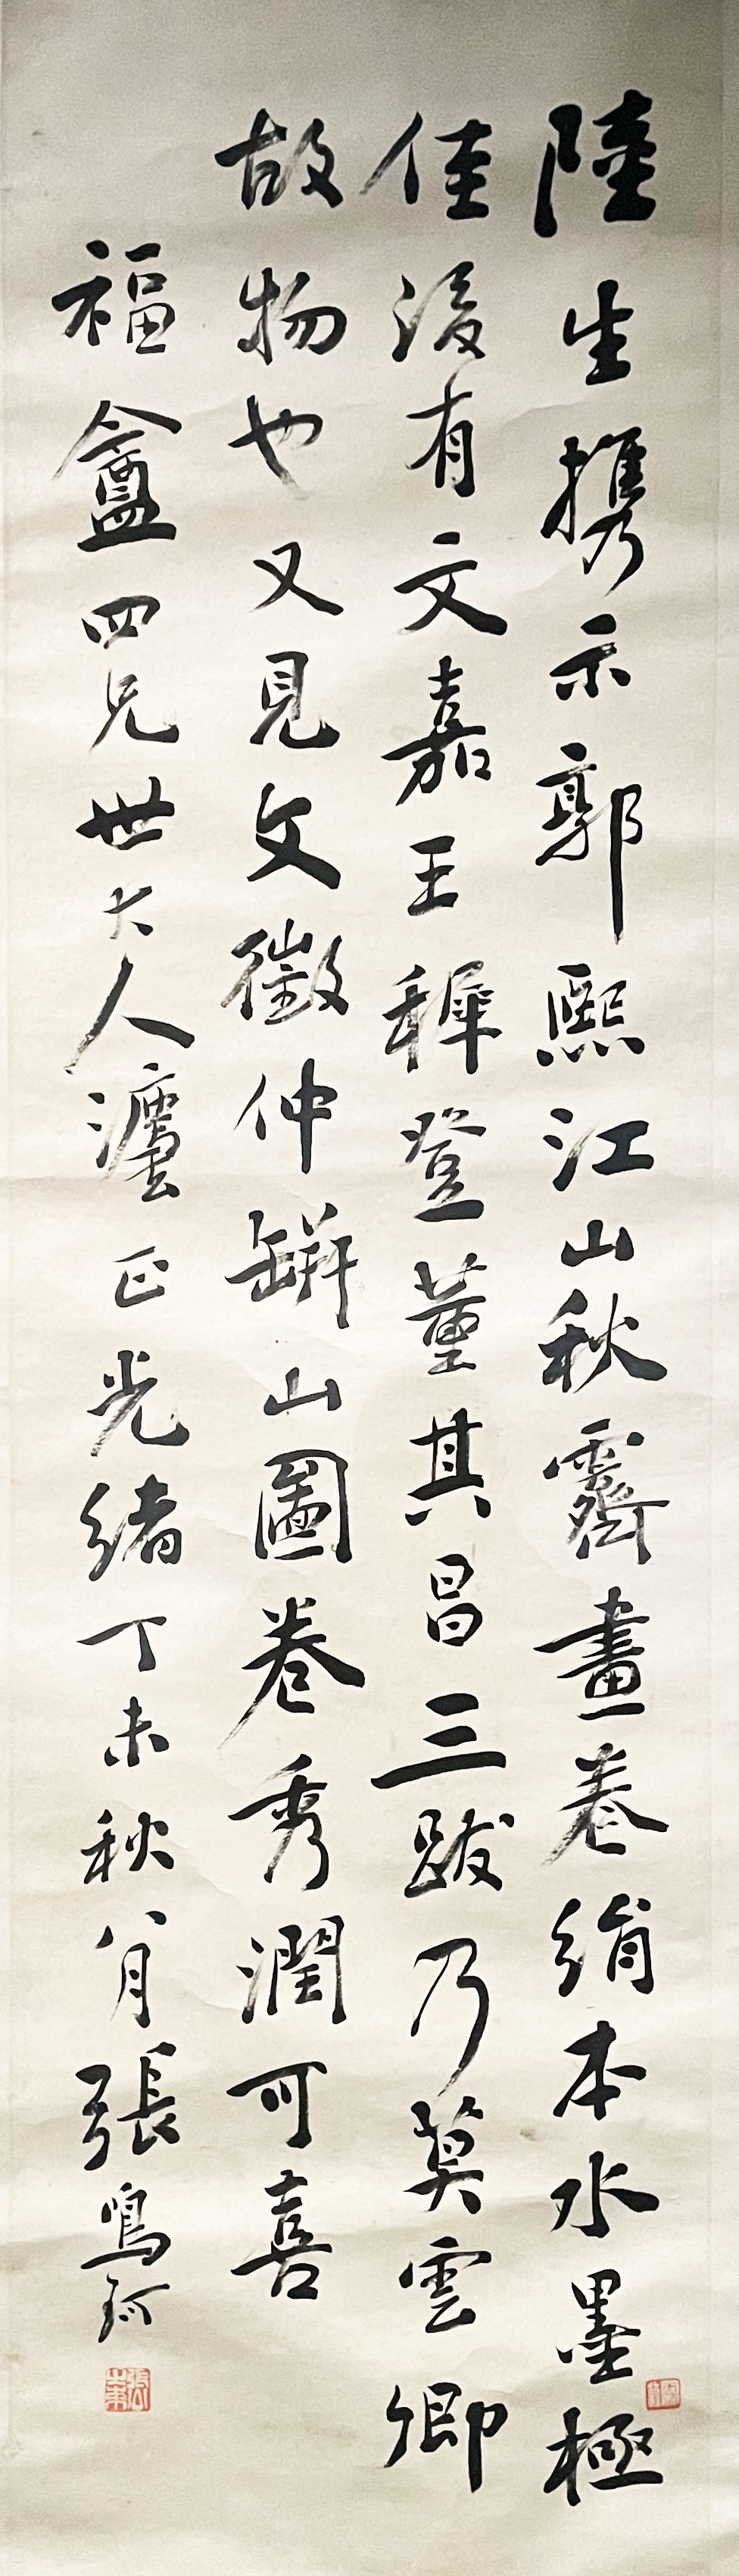 陸生攜示郭熙江山秋霽畫卷絹本水墨極
佳後有文嘉王穉登董其昌三跋乃莫雲卿
故物也又見文徵仲缾山圖卷秀潤可喜
福盦四兄世大人灋正光緒丁未秋八月張鳴珂